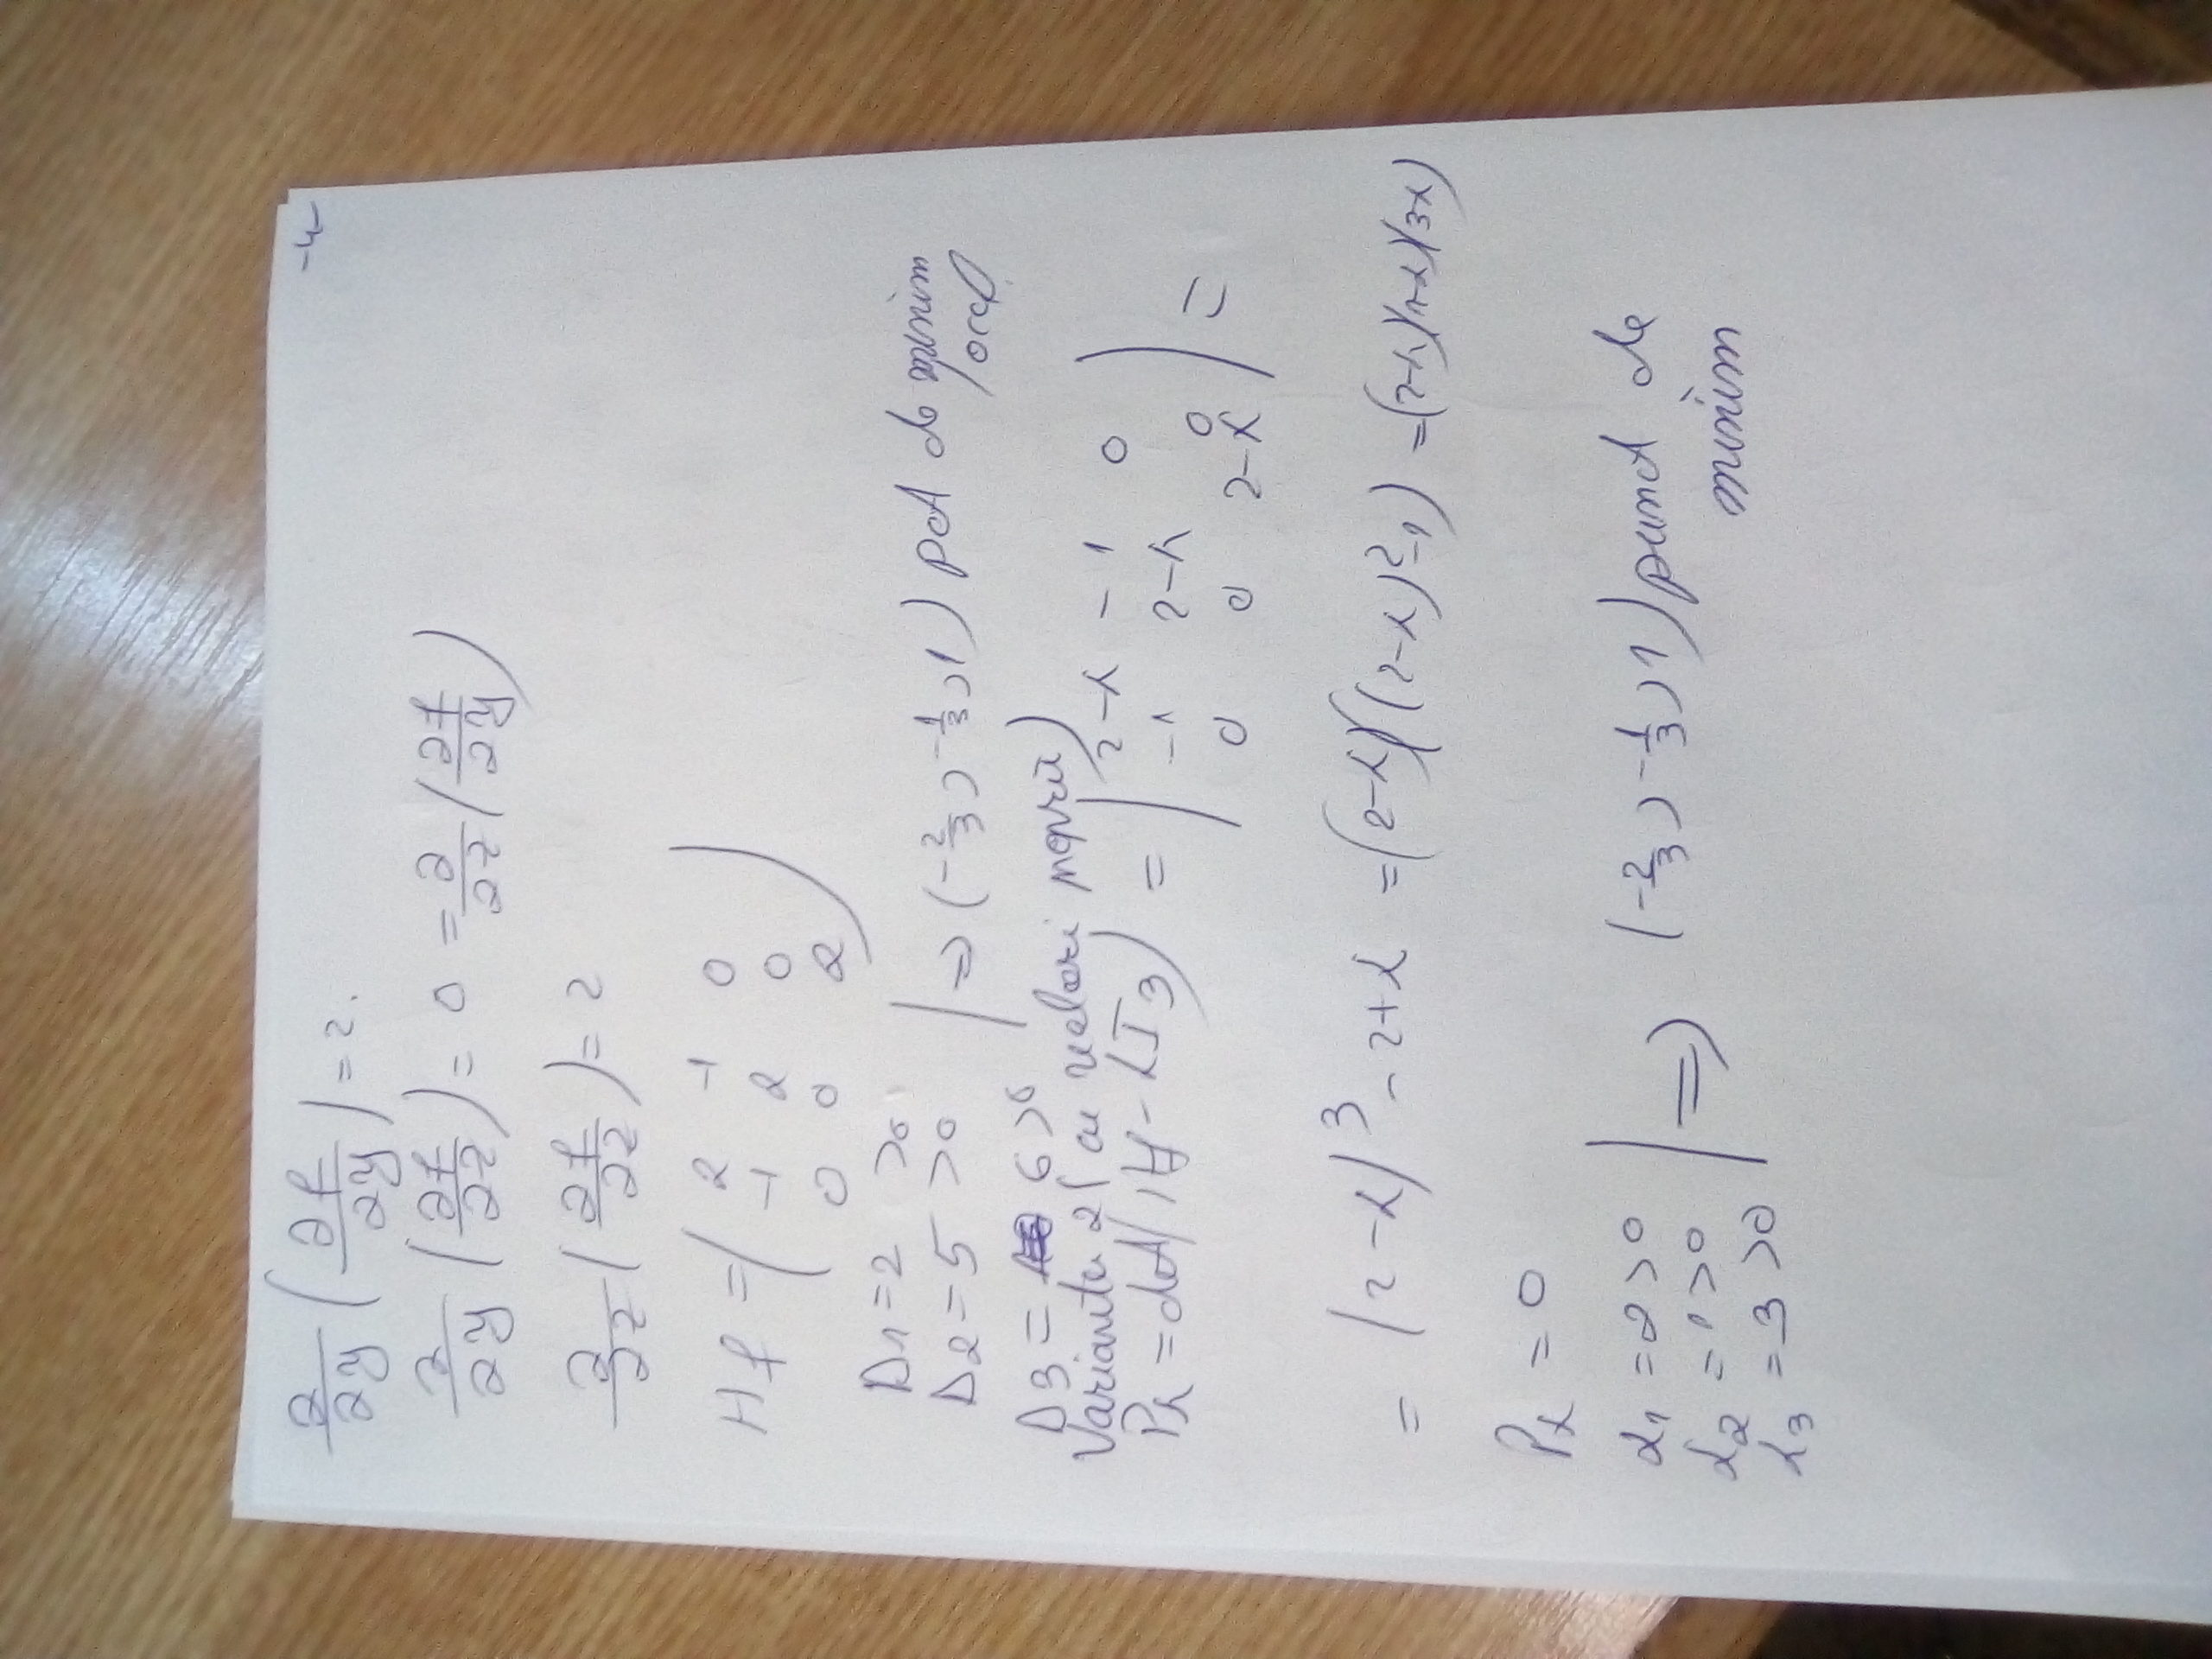 -4-
∂/∂y (∂f/∂y) = 2.
∂/∂y (∂f/∂z) = 0 = ∂/∂z (∂f/∂y)
∂/∂z (∂f/∂z) = 2
Hf = ( 2 -1 0
-1 2 0
0 0 2 )
Δ1 = 2 >0
Δ2 = 5 >0 | => (-2/3, -1/3, 1) pct de minim
local
Δ3 = 6 >0
Varianta 2 (cu valori proprii)
Pλ = det(H - λI3) = | 2-λ -1 0
-1 2-λ 0
0 0 2-λ | =
= (2-λ)^3 - 2+λ = (2-λ)((2-λ)^2-1) = (2-λ)(1-λ)(3-λ)
Pλ = 0
λ1 = 2 >0
λ2 = 1 >0 | => (-2/3, -1/3, 1) punct de
minim
λ3 = 3 >0